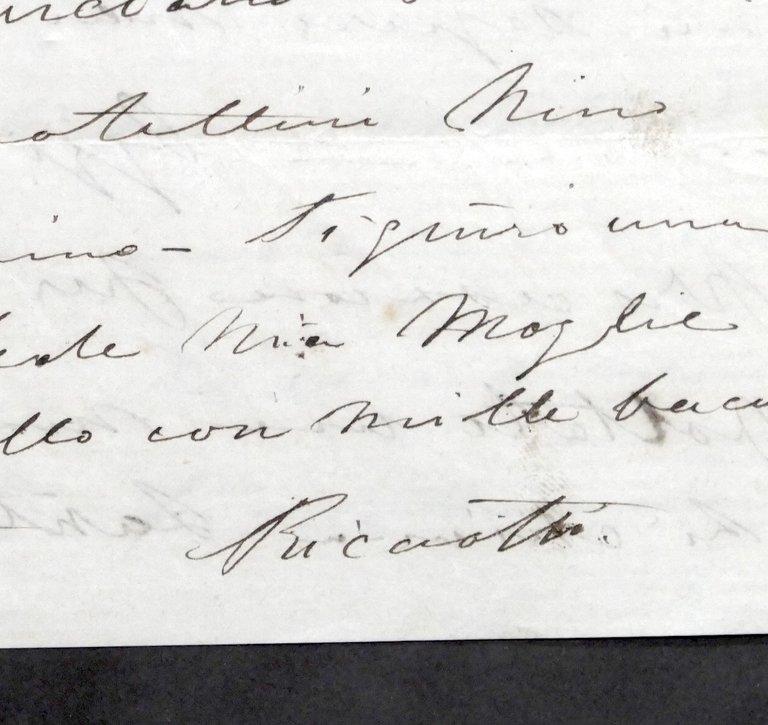 otellini Nino
ino - Ti giuro una
ede Mia Moglie
llo con mille baci
Ricciotti.